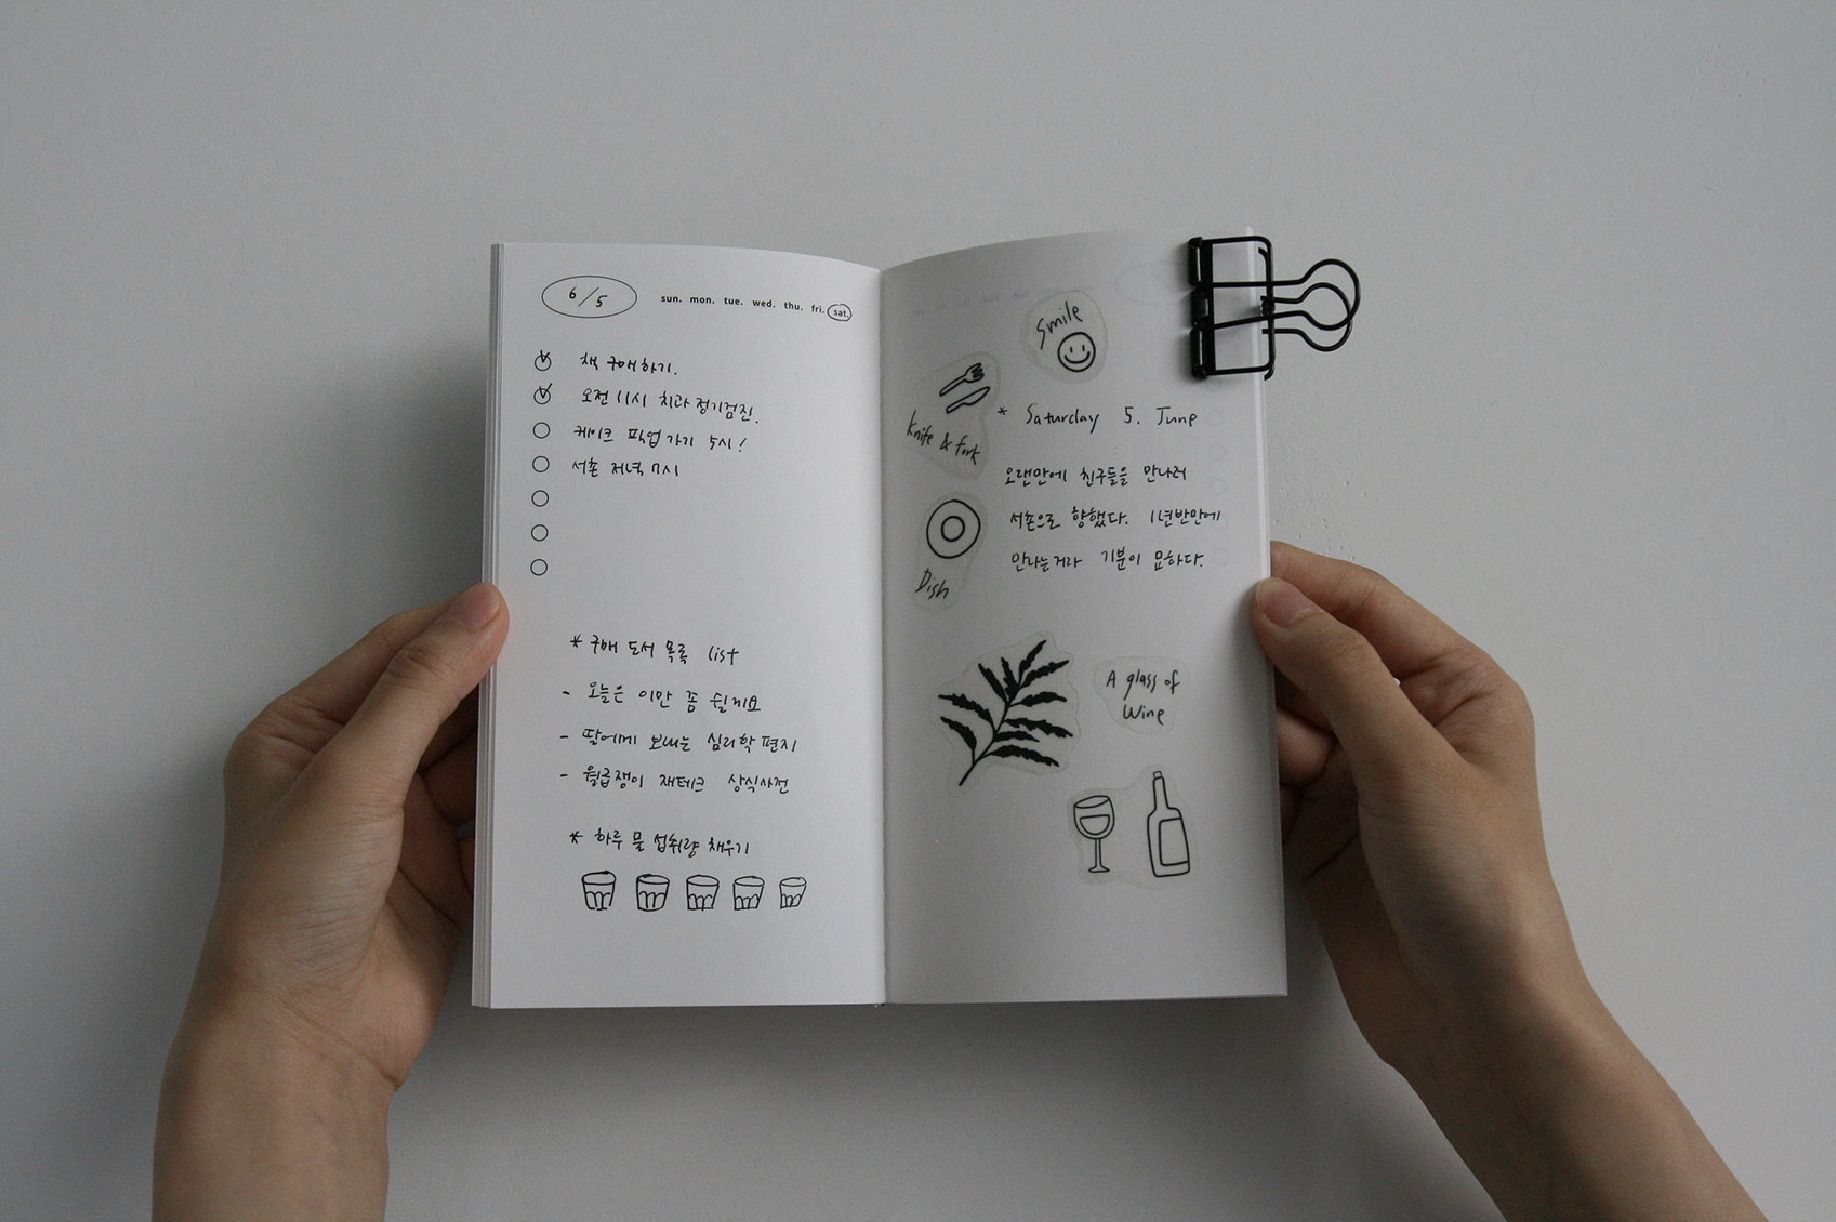 6/5
sun. mon. tue. wed. thu. fri. sat.
책 구매하기.
오전 11시 치과 정기검진.
케이크 픽업 가기 5시!
서촌 저녁 7시
* 구매 도서 목록 list
- 오늘은 이만 좀 쉴게요
- 딸에게 보내는 심리학 편지
- 월급쟁이 재테크 상식사전
* 하루 물 섭취량 채우기
Smile
Knife & fork
* Saturday 5. June
오랜만에 친구들을 만나러
서촌으로 향했다. 1년반만에
만나는거라 기분이 묘하다.
Dish
A glass of
Wine